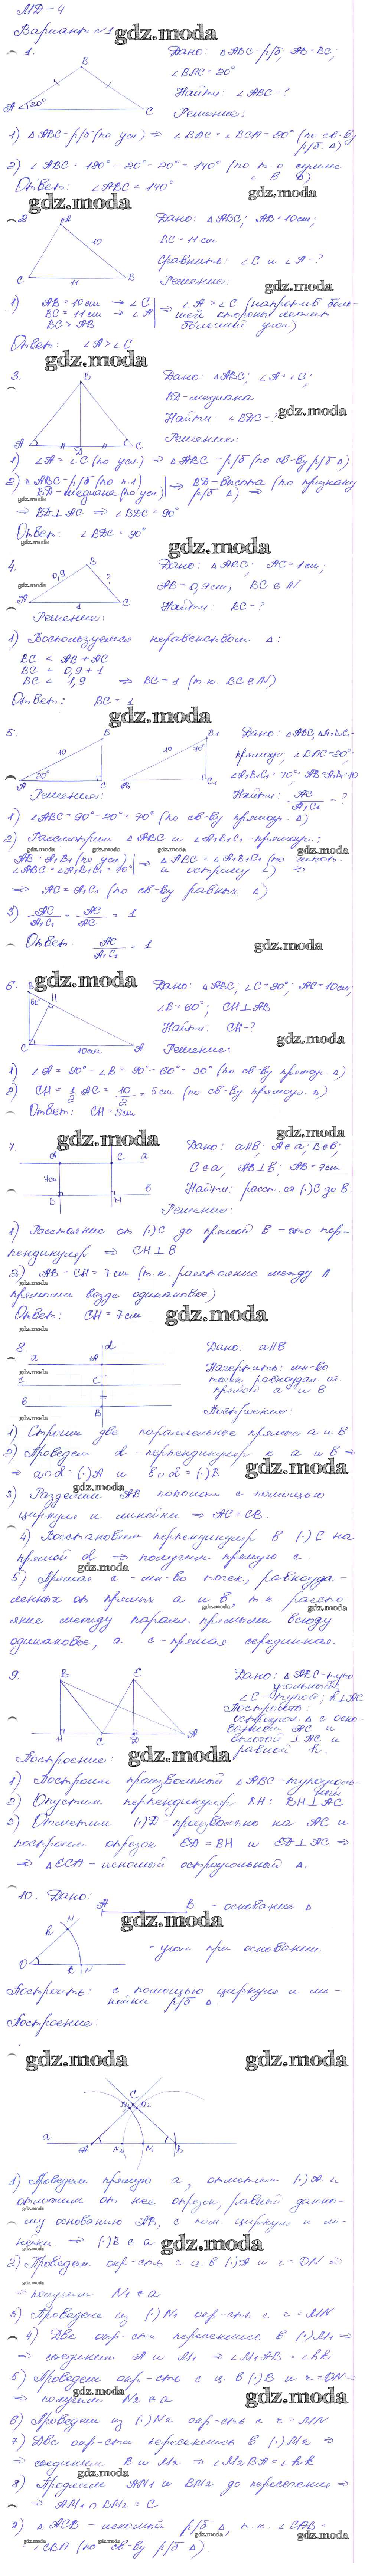 МД-4
Вариант №1
1.
Дано: △ABC-р/б; AB=BC;
∠BAC=20°
Найти: ∠ABC-?
Решение:
B
A 20° C
1) △ABC-р/б (по усл) ⇒ ∠BAC=∠BCA=20° (по св-ву р/б △)
2) ∠ABC=180°-20°-20°=140° (по т о сумме ∠ в △)
Ответ: ∠ABC=140°
2.
Дано: △ABC; AB=10см;
BC=11см
Сравнить: ∠C и ∠A-?
Решение:
A
10
C 11 B
1) AB=10см → ∠C
BC=11см → ∠A
BC>AB
⇒ ∠A>∠C (напротив большей стороны лежит больший угол)
Ответ: ∠A>∠C
3.
Дано: △ABC; ∠A=∠C;
BD-медиана
Найти: ∠BDC-?
Решение:
B
A D C
1) ∠A=∠C (по усл) ⇒ △ABC-р/б (по св-ву р/б △)
2) △ABC-р/б (по п.1)
BD-медиана (по усл)
⇒ BD-высота (по признаку р/б △) ⇒
⇒ BD⊥AC ⇒ ∠BDC=90°
Ответ: ∠BDC=90°
4.
Дано: △ABC; AC=1см;
AB=0,9см; BC∈N
Найти: BC-?
B
0,9 ?
A 1 C
Решение:
1) Воспользуемся неравенством △:
BC < AB+AC
BC < 0,9+1
BC < 1,9 ⇒ BC=1 (т.к. BC∈N)
Ответ: BC=1
5.
Дано: △ABC, △A₁B₁C₁-
прямоуг; ∠BAC=20°;
∠A₁B₁C₁=70°; AB=A₁B₁=10
Найти: AC/A₁C₁-?
B B₁
10 10 70°
A 20° C A₁ C₁
Решение:
1) ∠ABC=90°-20°=70° (по св-ву прямоуг. △)
2) Рассмотрим △ABC и △A₁B₁C₁-прямоуг.:
AB=A₁B₁ (по усл)
∠ABC=∠A₁B₁C₁=70°
⇒ △ABC=△A₁B₁C₁ (по гипот. и острому ∠) ⇒
⇒ AC=A₁C₁ (по св-ву равных △)
3) AC/A₁C₁=AC/AC=1
Ответ: AC/A₁C₁=1
6.
Дано: △ABC; ∠C=90°; AC=10см;
∠B=60°; CH⊥AB
Найти: CH-?
Решение:
B
60° H
C 10см A
1) ∠A=90°-∠B=90°-60°=30° (по св-ву прямоуг. △)
2) CH=1/2 AC=10/2=5см (по св-ву прямоуг. △)
Ответ: CH=5см
7
Дано: a||b; A∈a; B∈b;
C∈a; AB⊥b; AB=7см
Найти: расст. от (·)C до b.
Решение:
A C a
7см
B H b
1) Расстояние от (·)C до прямой b - это пер-
пендикуляр ⇒ CH⊥b
2) AB=CH=7см (т.к. расстояние между ||
прямыми везде одинаковое)
Ответ: CH=7см
8
Дано: a||b
Начертить: мн-во
точек равноудал. от
прямой a и b
Построение:
d
a A
c C
b B
1) Строим две параллельные прямые a и b
2) Проведем d-перпендикуляр к a и b ⇒
⇒ a∩d=(·)A и b∩d=(·)B
3) Разделим AB пополам с помощью
циркуля и линейки ⇒ AC=CB.
4) Восстановим перпендикуляр в (·)C на
прямой d ⇒ получим прямую c.
5) Прямая c-мн-во точек, равноуда-
ленных от прямых a и b, т.к. рассто-
яние между паралл. прямыми всюду
одинаковое, а c-прямая серединная.
9
Дано: △ABC-тупо-
угольный
∠C-тупой; h⊥AC
Построить:
остроугол. △ с осно-
ванием AC и
высотой ⊥AC и
равной h.
B E
H C D A
Построение:
1) Построим произвольный △ABC-тупоуголь-
ный
2) Опустим перпендикуляр BH: BH⊥AC
3) Отметим (·)D-произвольно на AC и
построим отрезок ED=BH и ED⊥AC ⇒
⇒ △ECA-искомый остроугольный △.
10. Дано:
A B - основание △
O h M k N
- угол при основании.
Построить: с помощью циркуля и ли-
нейки р/б △.
Построение:
C
M₁ M₂
a A N₂ N₁ B
1) Проведем прямую a, отметим (·)A и
отложим от нее отрезок, равный данно-
му основанию AB, с пом. циркуля и ли-
нейки. ⇒ (·)B∈a
2) Проведем окр-сть с ц. в (·)A и r=ON ⇒
⇒ получим N₁∈a
3) Проведем из (·)N₁ окр-сть с r=MN
4) Две окр-сти пересеклись в (·)M₁ ⇒
⇒ соединим A и M₁ ⇒ ∠M₁AB=∠hk
5) Проведем окр-сть с ц. в (·)B и r=ON ⇒
⇒ получим N₂∈a
6) Проведем из (·)N₂ окр-сть с r=MN
7) Две окр-сти пересеклись в (·)M₂ ⇒
⇒ соединим B и M₂ ⇒ ∠M₂BA=∠hk
8) Продлим AM₁ и BM₂ до пересечения ⇒
⇒ AM₁∩BM₂=C
9) △ACB-искомый р/б △, т.к. ∠CAB=
=∠CBA (по св-ву р/б △)
gdz.moda